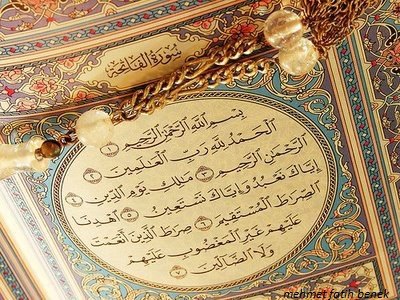 سُورَةُ الْفَاتِحَةِ
بِسْمِ اللَّهِ الرَّحْمَٰنِ الرَّحِيمِ ١
الْحَمْدُ لِلَّهِ رَبِّ الْعَالَمِينَ ٢
الرَّحْمَٰنِ الرَّحِيمِ ٣ مَالِكِ يَوْمِ الدِّينِ ٤
إِيَّاكَ نَعْبُدُ وَإِيَّاكَ نَسْتَعِينُ ٥ اهْدِنَا
الصِّرَاطَ الْمُسْتَقِيمَ ٦ صِرَاطَ الَّذِينَ أَنْعَمْتَ
عَلَيْهِمْ غَيْرِ الْمَغْضُوبِ عَلَيْهِمْ
وَلَا الضَّالِّينَ ٧
mehmet fatih benek